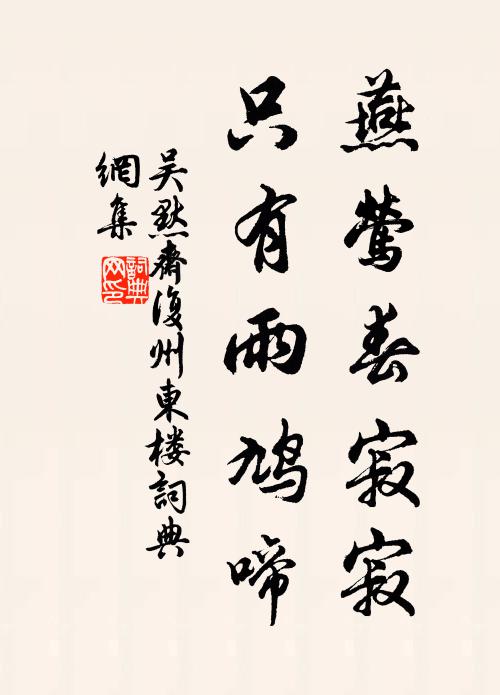 燕鶯春寂寂
只有雨鳩啼
吴默齋復州東楼詞典
網集
詞典網印